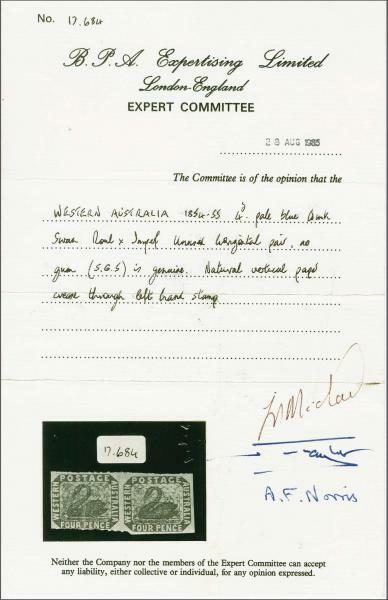 No. 17.684
B.P.A. Expertising Limited
London-England
EXPERT COMMITTEE
28 AUG 1985
The Committee is of the opinion that the
WESTERN AUSTRALIA 1854-55 4d pale blue Black
Swan Roul x Imperf Unused horizontal pair, no
gum (S.G.5) is genuine. Natural vertical paper
crease through left hand stamp
17.684
POSTAGE POSTAGE
WESTERN AUSTRALIA WESTERN AUSTRALIA
FOUR PENCE FOUR PENCE
A.F. Norris
Neither the Company nor the members of the Expert Committee can accept
any liability, either collective or individual, for any opinion expressed.